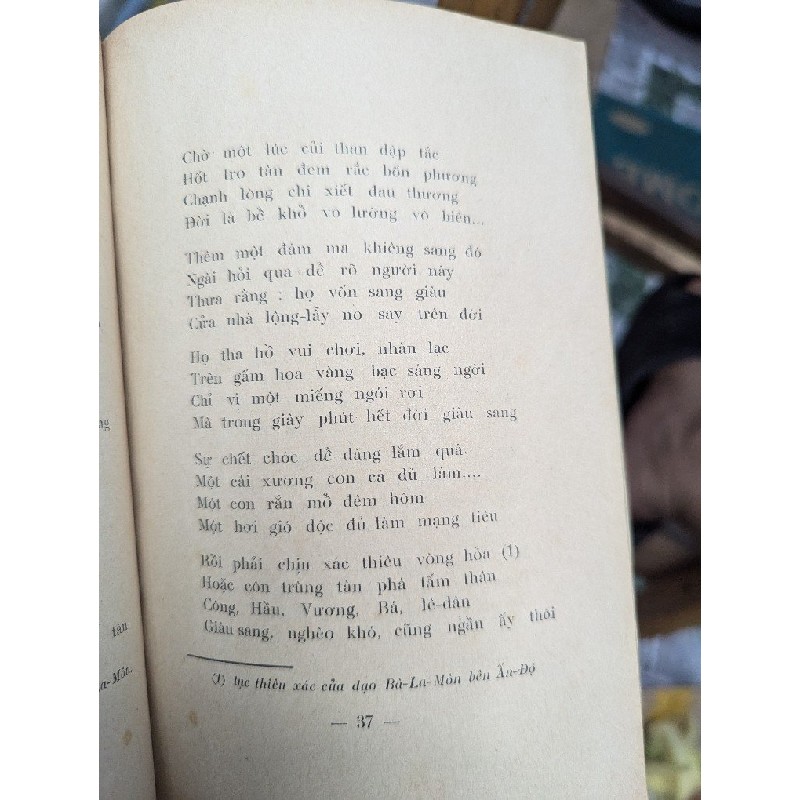 Chờ một lúc củi than dập tắc
Hốt tro tàn đem rắc bốn phương
Chạnh lòng chi xiết đau thương
Đời là bể khổ vô lường vô biên...
Thêm một đám ma khiêng sang đó
Ngài hỏi qua để rõ người này
Thưa rằng : họ vốn sang giàu
Cửa nhà lộng-lẫy nó say trên đời
Họ tha hồ vui chơi, nhàn lạc
Trên gấm hoa vàng bạc sáng ngơi
Chỉ vì một miếng ngói rơi
Mà trong giây phút hết đời giàu sang
Sự chết chóc dễ dàng lắm quá
Một cái xương con cá đủ làm....
Một con rắn mổ đêm hôm
Một hơi gió độc đủ làm mạng tiêu
Rồi phải chịu xác thiêu vòng hỏa (1)
Hoặc côn trùng tàn phá tấm thân
Công, Hầu, Vương, Bá, lê-dân
Giàu sang, nghèo khó, cũng ngần ấy thôi
(1) tục thiên xác của đạo Bà-La-Môn bên Ấn-Độ
— 37 —
ng
tàu
a-Môn.